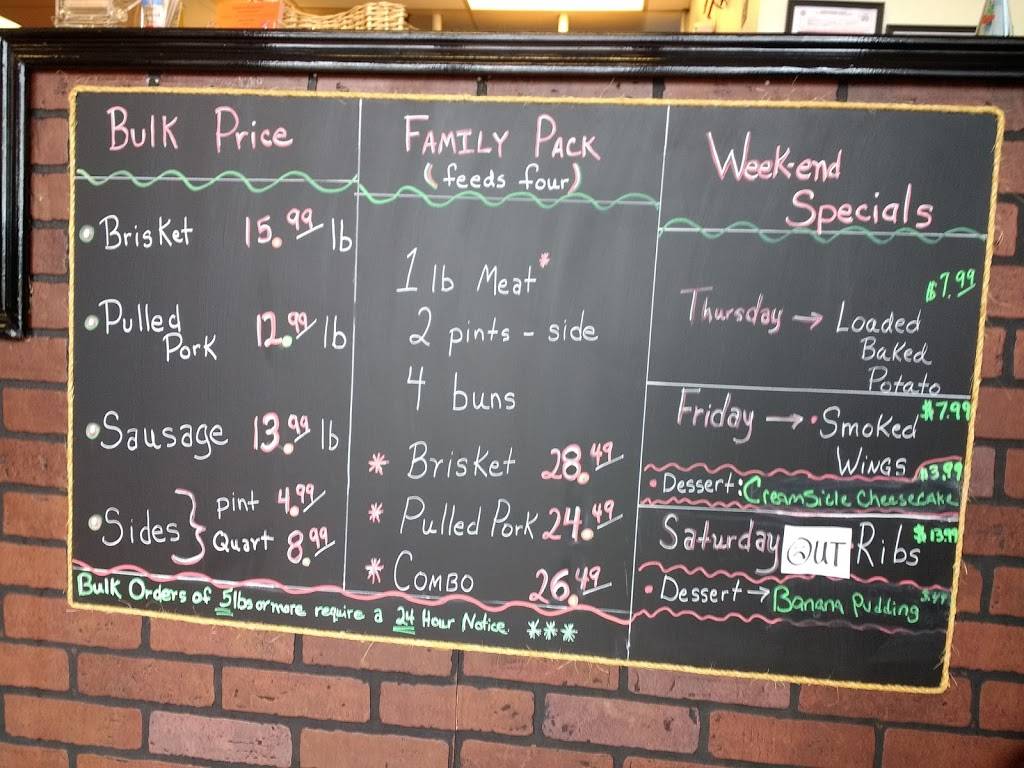 Bulk Price
• Brisket 15.99 lb
• Pulled Pork 12.99 lb
• Sausage 13.99 lb
• Sides } pint 4.99
Quart 8.99
Bulk Orders of 5lbs or more require a 24 Hour Notice ***
FAMILY PACK
(feeds four)
1 lb Meat*
2 pints - side
4 buns
* Brisket 28.49
* Pulled Pork 24.49
* Combo 26.49
Week-end
Specials
$7.99
Thursday → Loaded
Baked
Potato
Friday → • Smoked $7.99
Wings
$3.99
• Dessert: Creamsicle Cheesecake
Saturday OUT Ribs $13.99
• Dessert → Banana Pudding